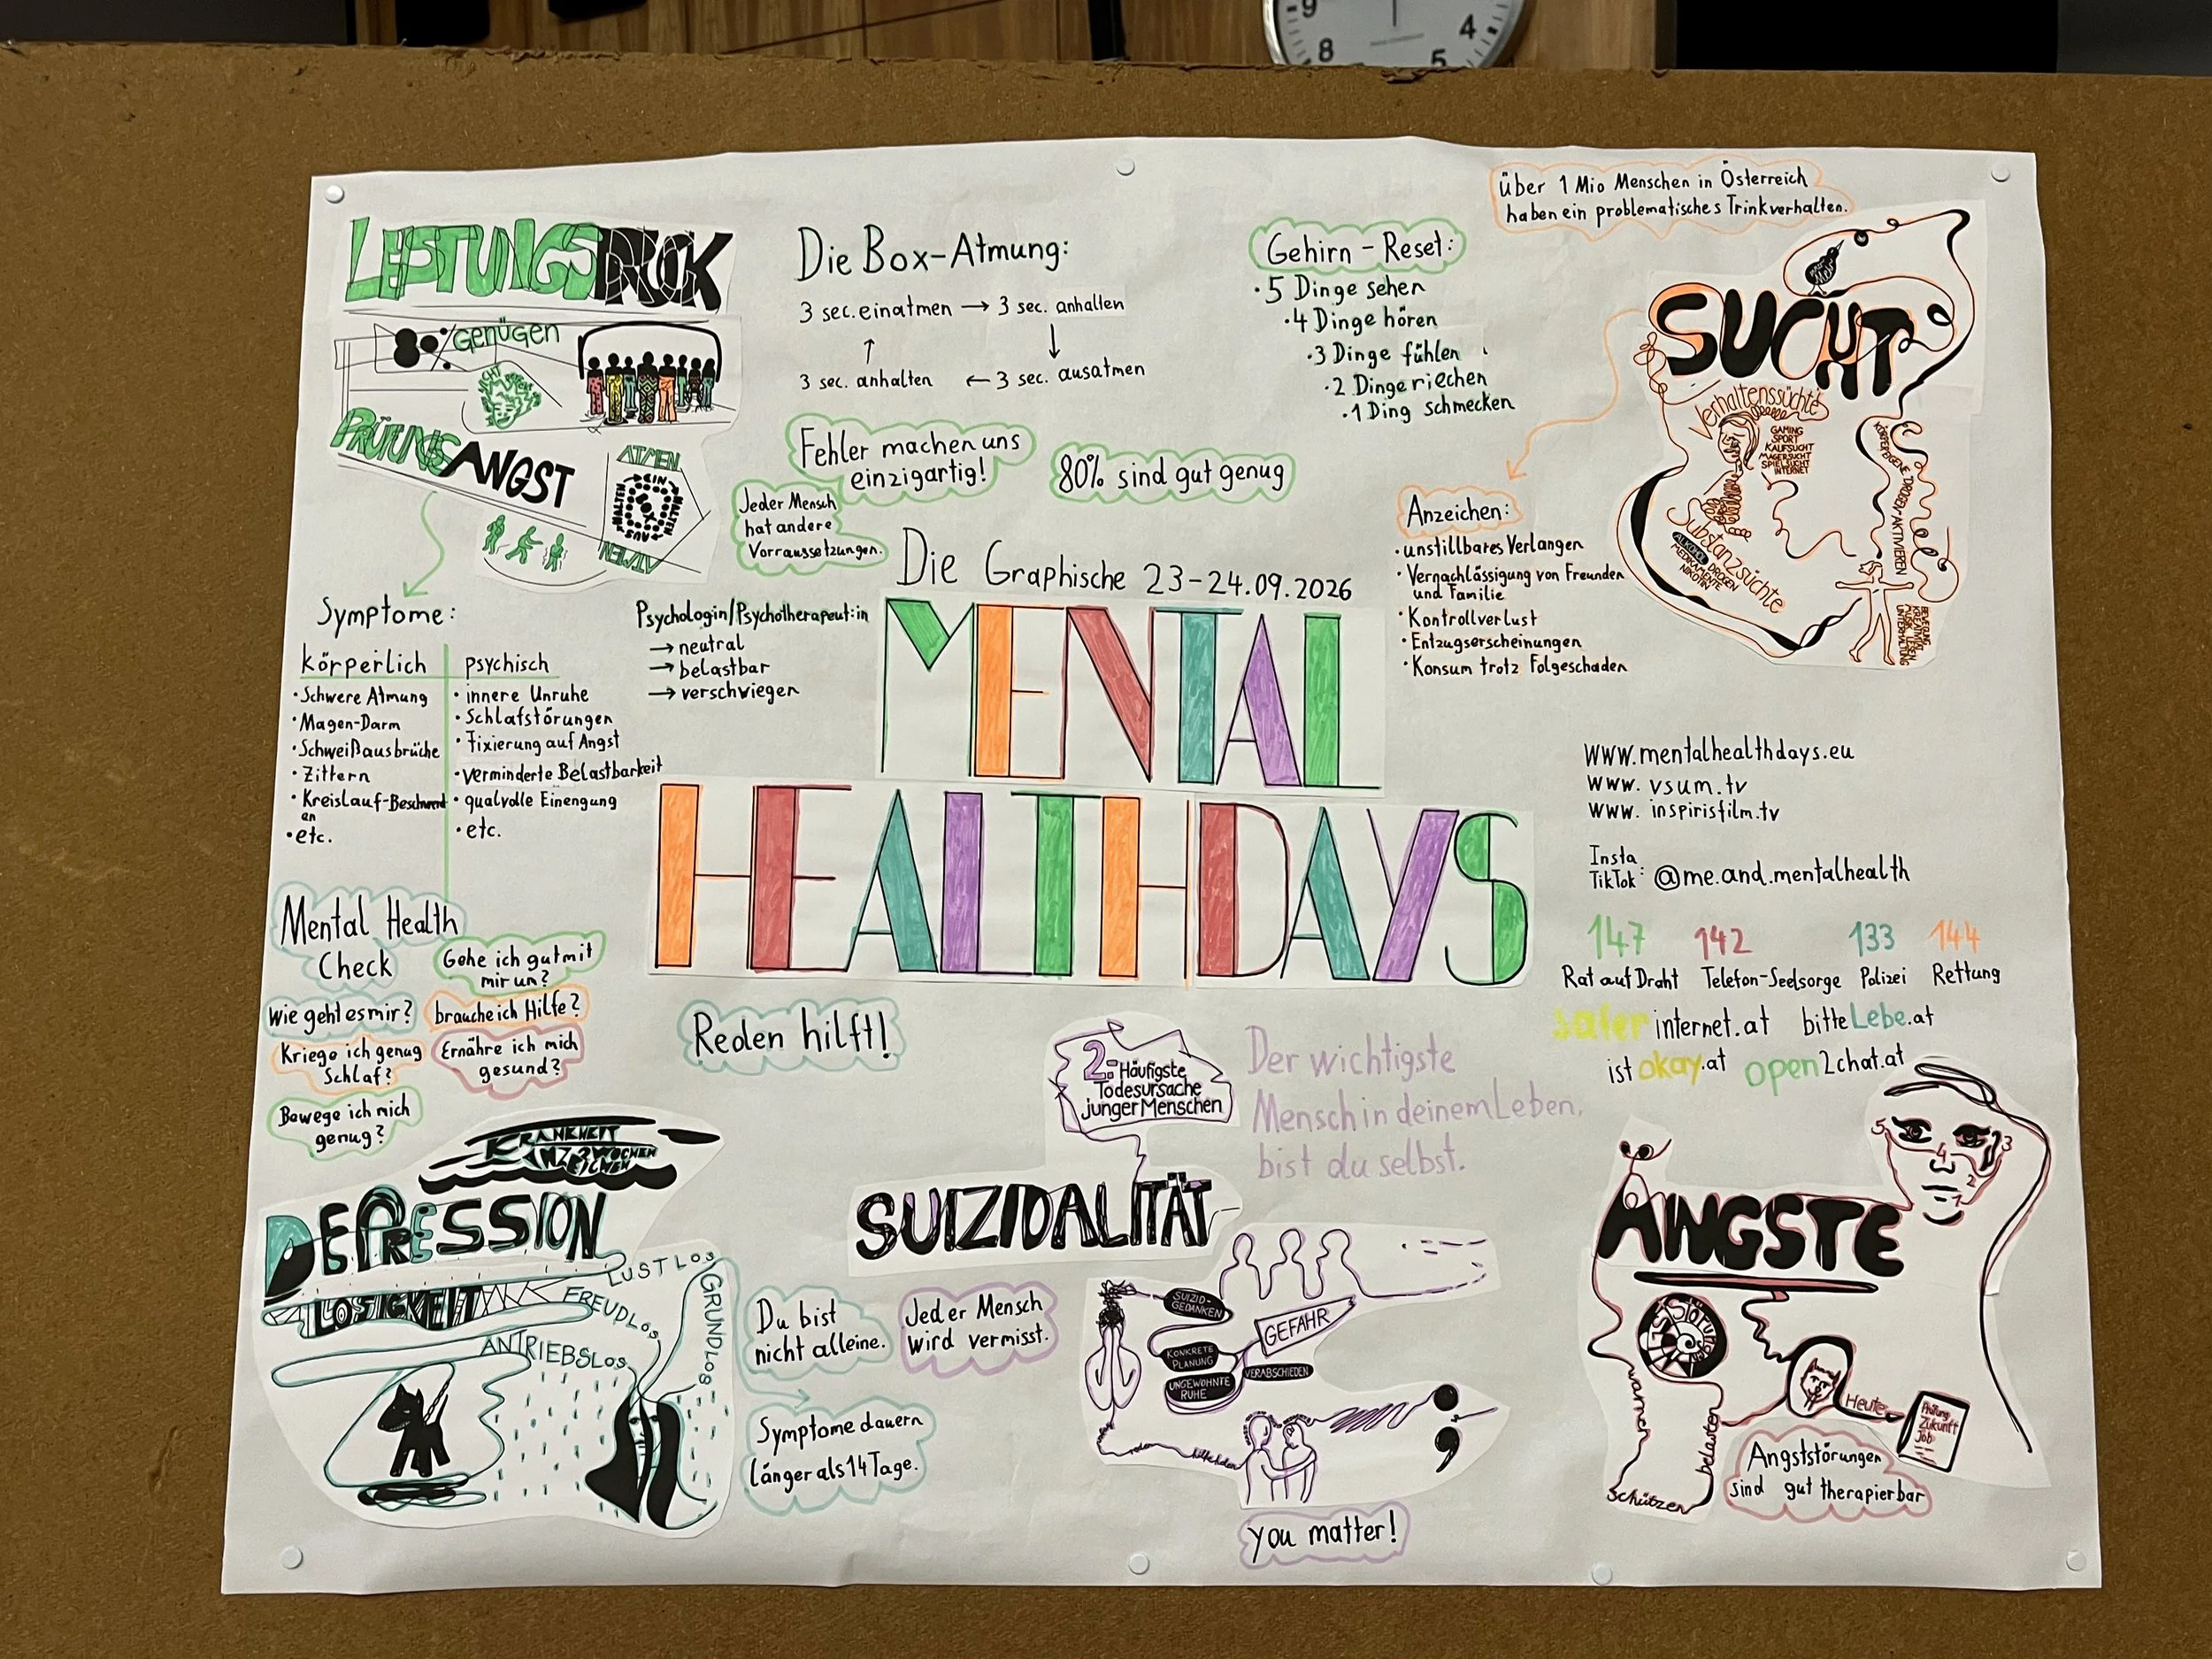 -9
8
4
5
LEISTUNGSDRUCK
80% GENÜGEN
PRÜFUNGSANGST
ATMEN
EIN
HALTEN
AUS
HALTEN
ATMEN
Die Box-Atmung:
3 sec. einatmen → 3 sec. anhalten
↑ ↓
3 sec. anhalten ← 3 sec. ausatmen
Gehirn - Reset:
• 5 Dinge sehen
• 4 Dinge hören
• 3 Dinge fühlen
• 2 Dinge riechen
• 1 Ding schmecken
über 1 Mio Menschen in Österreich
haben ein problematisches Trinkverhalten.
SUCHT
Verhaltenssüchte
GAMING
SPORT
KAUFSUCHT
MAGERSUCHT
SPIELSUCHT
INTERNET
KÖRPEREIGENE DROGEN AKTIVIEREN
Substanzsüchte
ALKOHOL DROGEN
MEDIKAMENTE
NIKOTIN
BEWEGUNG
KREATIVITÄT
MUSIK LESEN
UNTERHALTUNG
Fehler machen uns
einzigartig!
80% sind gut genug
Jeder Mensch
hat andere
Vorraussetzungen.
Anzeichen:
• unstillbares Verlangen
• Vernachlässigung von Freunden
und Familie
• Kontrollverlust
• Entzugserscheinungen
• Konsum trotz Folgeschäden
Die Graphische 23-24.09.2026
MENTAL
HEALTHDAYS
Symptome:
körperlich
• Schwere Atmung
• Magen-Darm
• Schweißausbrüche
• Zittern
• Kreislauf-Beschwerd
en
• etc.
psychisch
• innere Unruhe
• Schlafstörungen
• Fixierung auf Angst
• verminderte Belastbarkeit
• qualvolle Einengung
• etc.
Psychologin/Psychotherapeut:in
→ neutral
→ belastbar
→ verschwiegen
www.mentalhealthdays.eu
www. vsum.tv
www. inspirisfilm.tv
Insta
TikTok: @me.and.mentalhealth
147 142 133 144
Rat auf Draht Telefon-Seelsorge Polizei Rettung
saferinternet.at bitteLebe.at
istokay.at open2chat.at
Mental Health
Check
Gehe ich gut mit
mir um?
Wie geht es mir?
brauche ich Hilfe?
Kriege ich genug
Schlaf?
Ernähre ich mich
gesund?
Bewege ich mich
genug?
Reden hilft!
2.
Häufigste
Todesursache
junger Menschen
Der wichtigste
Mensch in deinem Leben,
bist du selbst.
KRANKHEIT
DEPRESSION
LOSIGKEIT
LUSTLOS
FREUDLOS
GRUNDLOS
ANTRIEBSLOS
Du bist
nicht alleine.
Symptome dauern
länger als 14 Tage.
SUIZIDALITÄT
Jeder Mensch
wird vermisst.
SUIZID-
GEDANKEN
GEFAHR
KONKRETE
PLANUNG
VERABSCHIEDEN
UNGEWOHNTE
RUHE
you matter!
5
4
3
2
1
ÄNGSTE
warnen
belasten
schützen
Heute
Prüfung
Zukunft
Job
Angststörungen
sind gut therapierbar